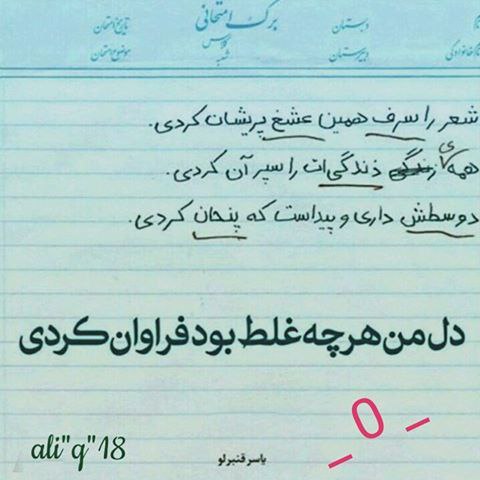 نام دبستان برگ امتحانی تاریخ امتحان
نام خانوادگی دبیرستان کلاس شعبه موضوع امتحان
شعر را سرف همین عشغ پریشان کردی.
همه ی ذندگی‌ات را سپر آن کردی.
دوسطش داری و پیداست که پنحان کردی.
دل من هرچه غلط بود فراوان کردی
_ 0 _
ali"q"18
یاسر قنبرلو